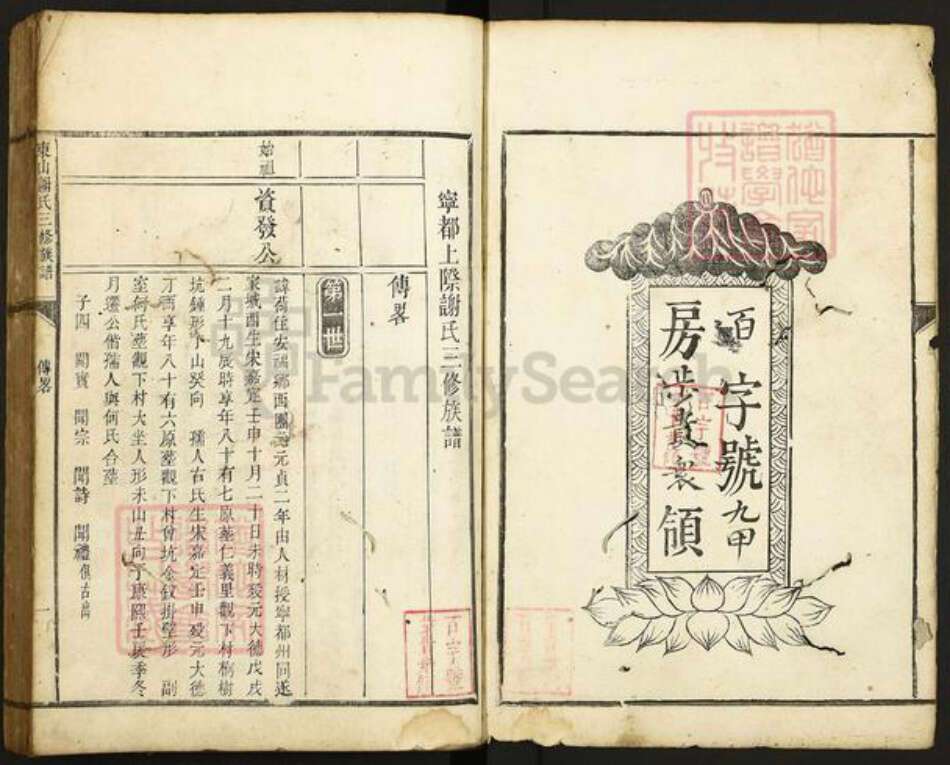 百字號九甲
房 領
寧都上際謝氏三修族譜
傳畧
第一世
始祖
資發公
諱 住安福鄉西團 元貞二年由人材授寧都州同遂
家城 生宋嘉定壬申十月二十日未時歿元大德戊戌
二月十九辰時享年八十有七原塟仁義里觀下村 樹
坑鍾形 山癸向 孺人古氏生宋嘉定壬申歿元大德
丁酉享年八十有六原塟觀下村曾坑金釵掛壁形 副
室何氏塟觀下村大坐人形未山丑向于康熙壬辰季冬
月遷公偕孺人與何氏合塟
子四 聞寶 聞宗 聞詩 聞禮俱古出
東山謝氏三修族譜
傳畧
一
FamilySearch